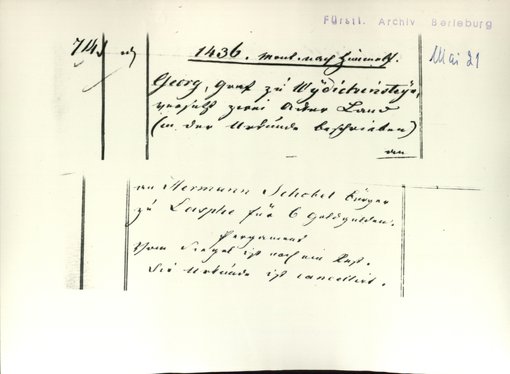 Fürstl. Archiv Berleburg
Mai 21
1436. mont. nach Himmelf.
Georg, Graf zu Wydichensteyn,
versetzt zwei Acker Land
(in der Urkunde beschrieben)
an
an Hermann Schohel bürger
zu Lasphe für 6 Goldgulden.
Pergament
Vom Siegel ist noch ein Rest.
Die Urkunde ist cancellirt.